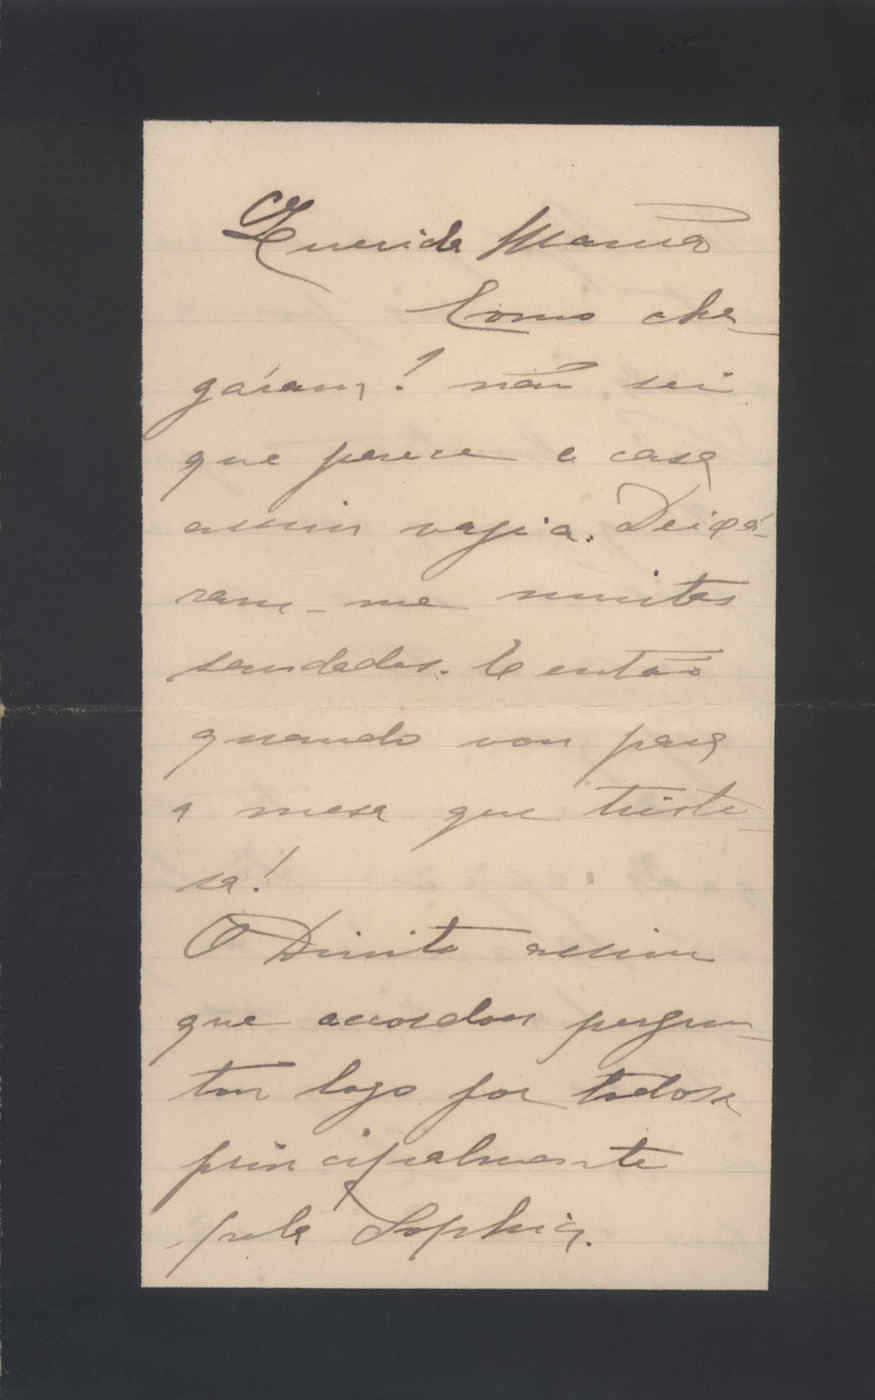 Querida Mamã
Como che-
gáram? não sei
que parece a casa
assim vasia. Deixá-
ram-me muitas
saudades. E então
quando vou para
a mesa que triste-
sa!
O Dinito assim
que accordou pergun-
tou logo por todos e
principalmente
pela Sophia.